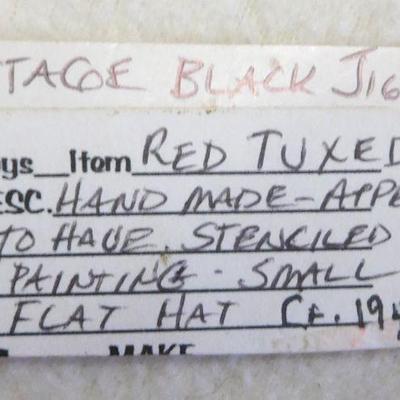 TAGE BLACK JIG
ys__Item RED TUXED
ESC. HAND MADE - APPE
TO HAVE STENCILED
PAINTING - SMALL
FLAT HAT CE. 19
MAKE